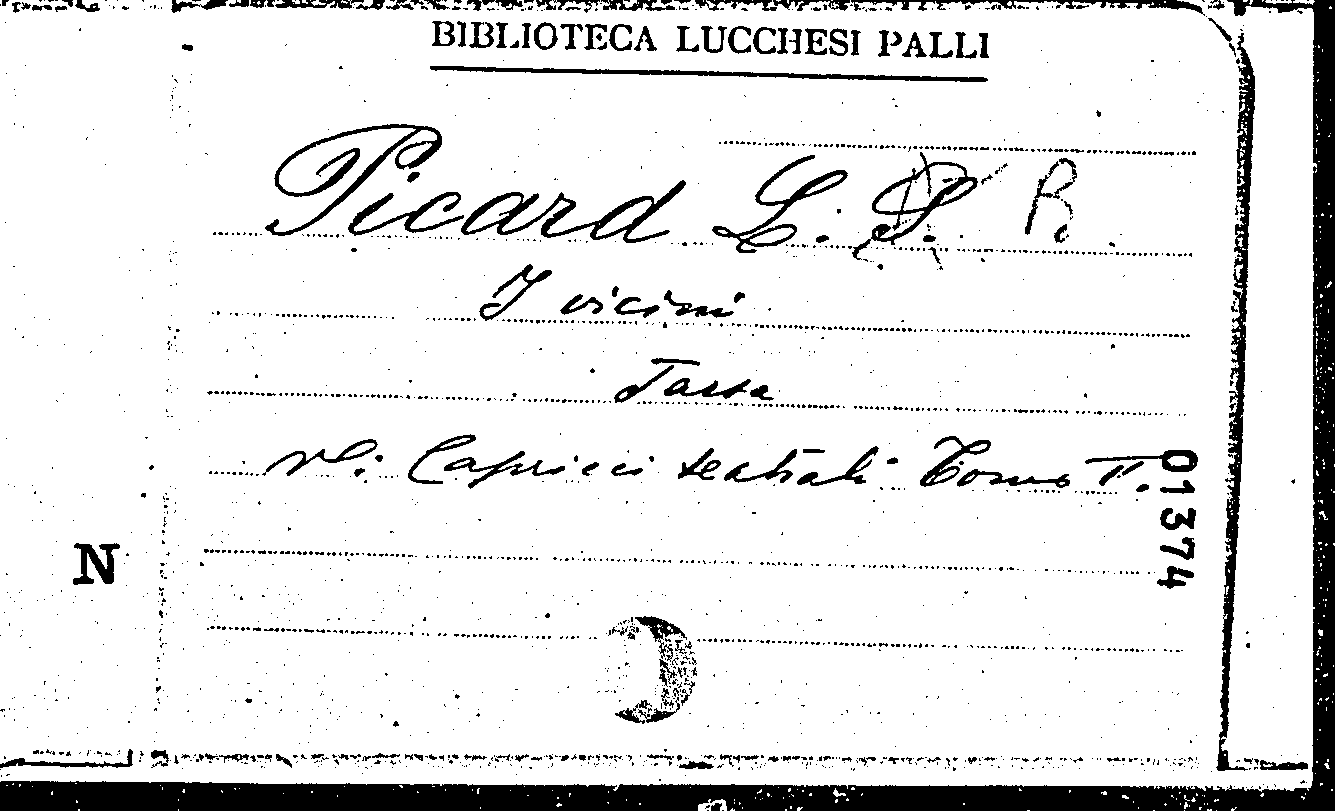 BIBLIOTECA LUCCHESI PALLI
Picard L. S. B.
I vicini
Farsa
V. Capricci teatrali Tomo II.
01374
N